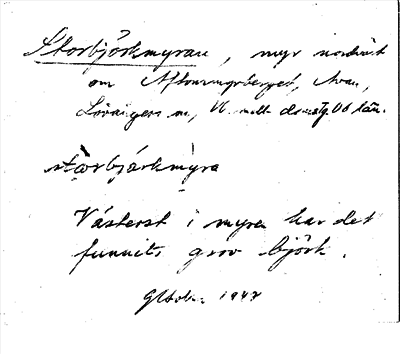 Storbjörkmyran, myr nordväst
om Aftonmyrberget, Avan,
Lövångers sn, N. mell. domsag. Vb län.
stòrbjárkmýra
Västerst i myra har det
funnits grov björk.
1947